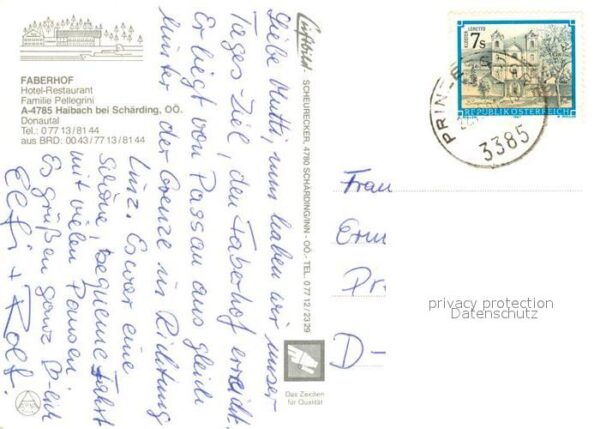 FABERHOF
Hotel-Restaurant
Familie Pellegrini
A-4785 Haibach bei Schärding, OÖ.
Donautal
Tel.: 0 77 13 / 81 44
aus BRD: 00 43 / 77 13 / 81 44
Liebe Mutti, nun haben wir unser
Tages-Ziel, den Faberhof erreicht.
Er liegt von Passau aus gleich
hinter der Grenze in Richtung
Linz. Es war eine
schöne, bequeme Fahrt
mit vielen Pausen.
Es grüßen ganz D-lich
Elfi + Rolf.
Luftbild - SCHEURECKER, 4780 SCHÄRDING/INN - OÖ. - TEL. 0 77 12 / 23 29
Das Zeichen
für Qualität
7 S
LORETTO
REPUBLIK ÖSTERREICH
PRINZ
3385
Frau
Pr
D-
privacy protection
Datenschutz